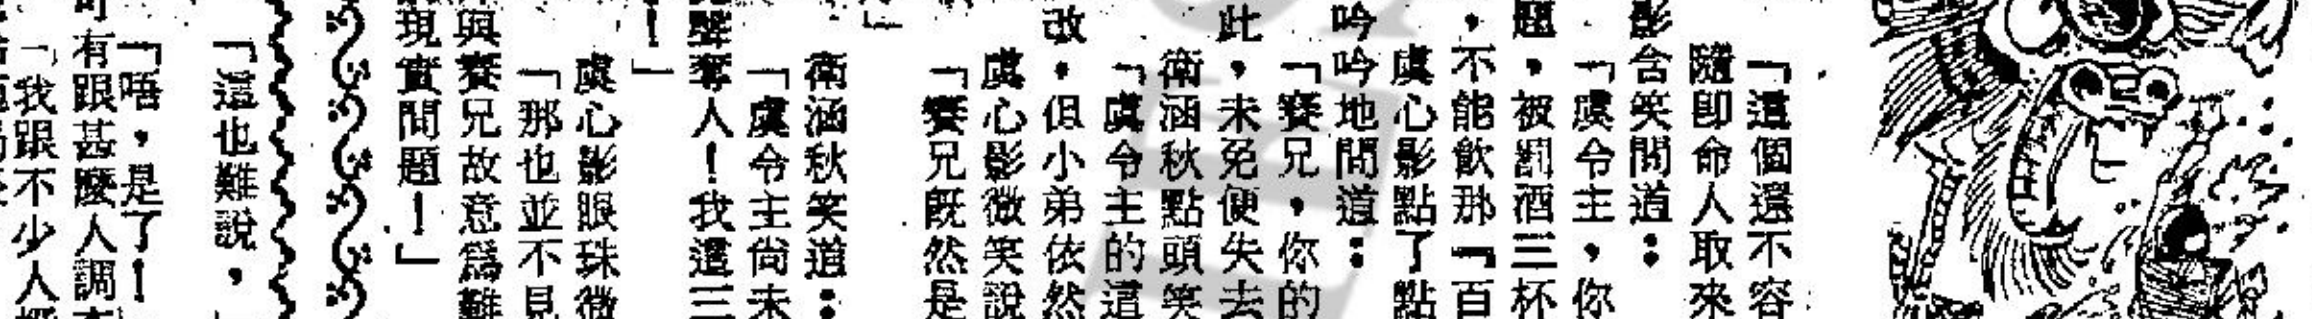 「這個還不容
隨卽命人取來
影含笑問道：
「虞令主，你
題，被罰酒三杯
，不能飲那『百
虞心影點了點
吟吟地問道：
「賽兄，你的
此，未免便失去
衛涵秋點頭笑
「虞令主的這
改，但小弟依然
虞心影微笑說
「賽兄旣然是
」
衛涵秋笑道：
「虞令主尙未
聲奪人！我還三
！」
虞心影眼珠微
「那也並不見
與賽兄故意爲難
現實問題！」
「這也難說，
「唔，是了！
可有跟甚麽人調
「我跟不少人